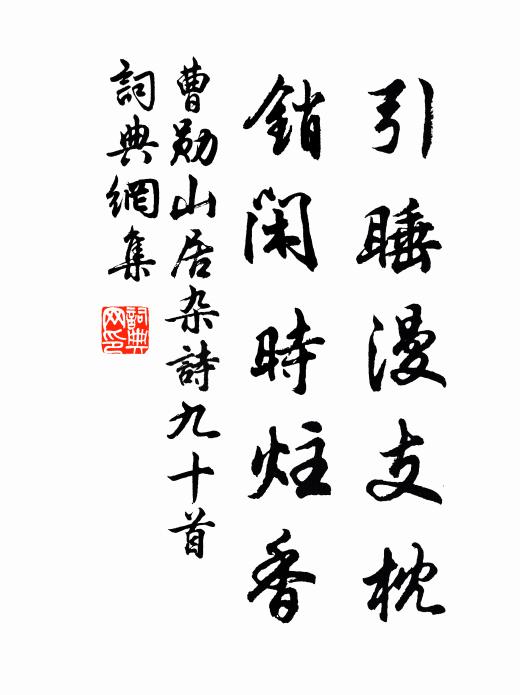 引睡漫支枕
銷閑時炷香
曹勛山居杂詩九十首
詞典網集
詞典網印